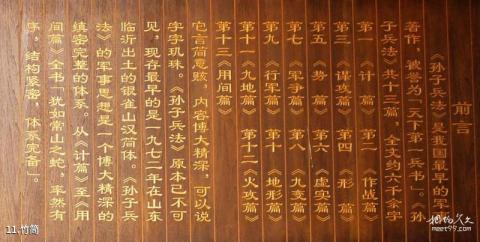 前言
《孙子兵法》是我国最早的军事
著作，被誉为《天下第一兵书》。《孙
子兵法》共十三篇，全文约六千余字
第一《计篇》 第二《作战篇》
第三《谋攻篇》 第四《形篇》
第五《势篇》 第六《虚实篇》
第七《军争篇》 第八《九变篇》
第九《行军篇》 第十《地形篇》
第十一《九地篇》 第十二《火攻篇》
第十三《用间篇》
它言简意赅，内容博大精深，可以说
字字玑珠。《孙子兵法》原本已不可
见，现存最早的是一九七二年在山东
临沂出土的银雀山汉简体。《孙子兵
法》的军事思想是一个博大精深的
缜密完整的体系。从《计篇》至《用
间篇》全书「犹如常山之蛇，率然有
序，结构紧密，体系完备」。
11.竹简
meet99.com